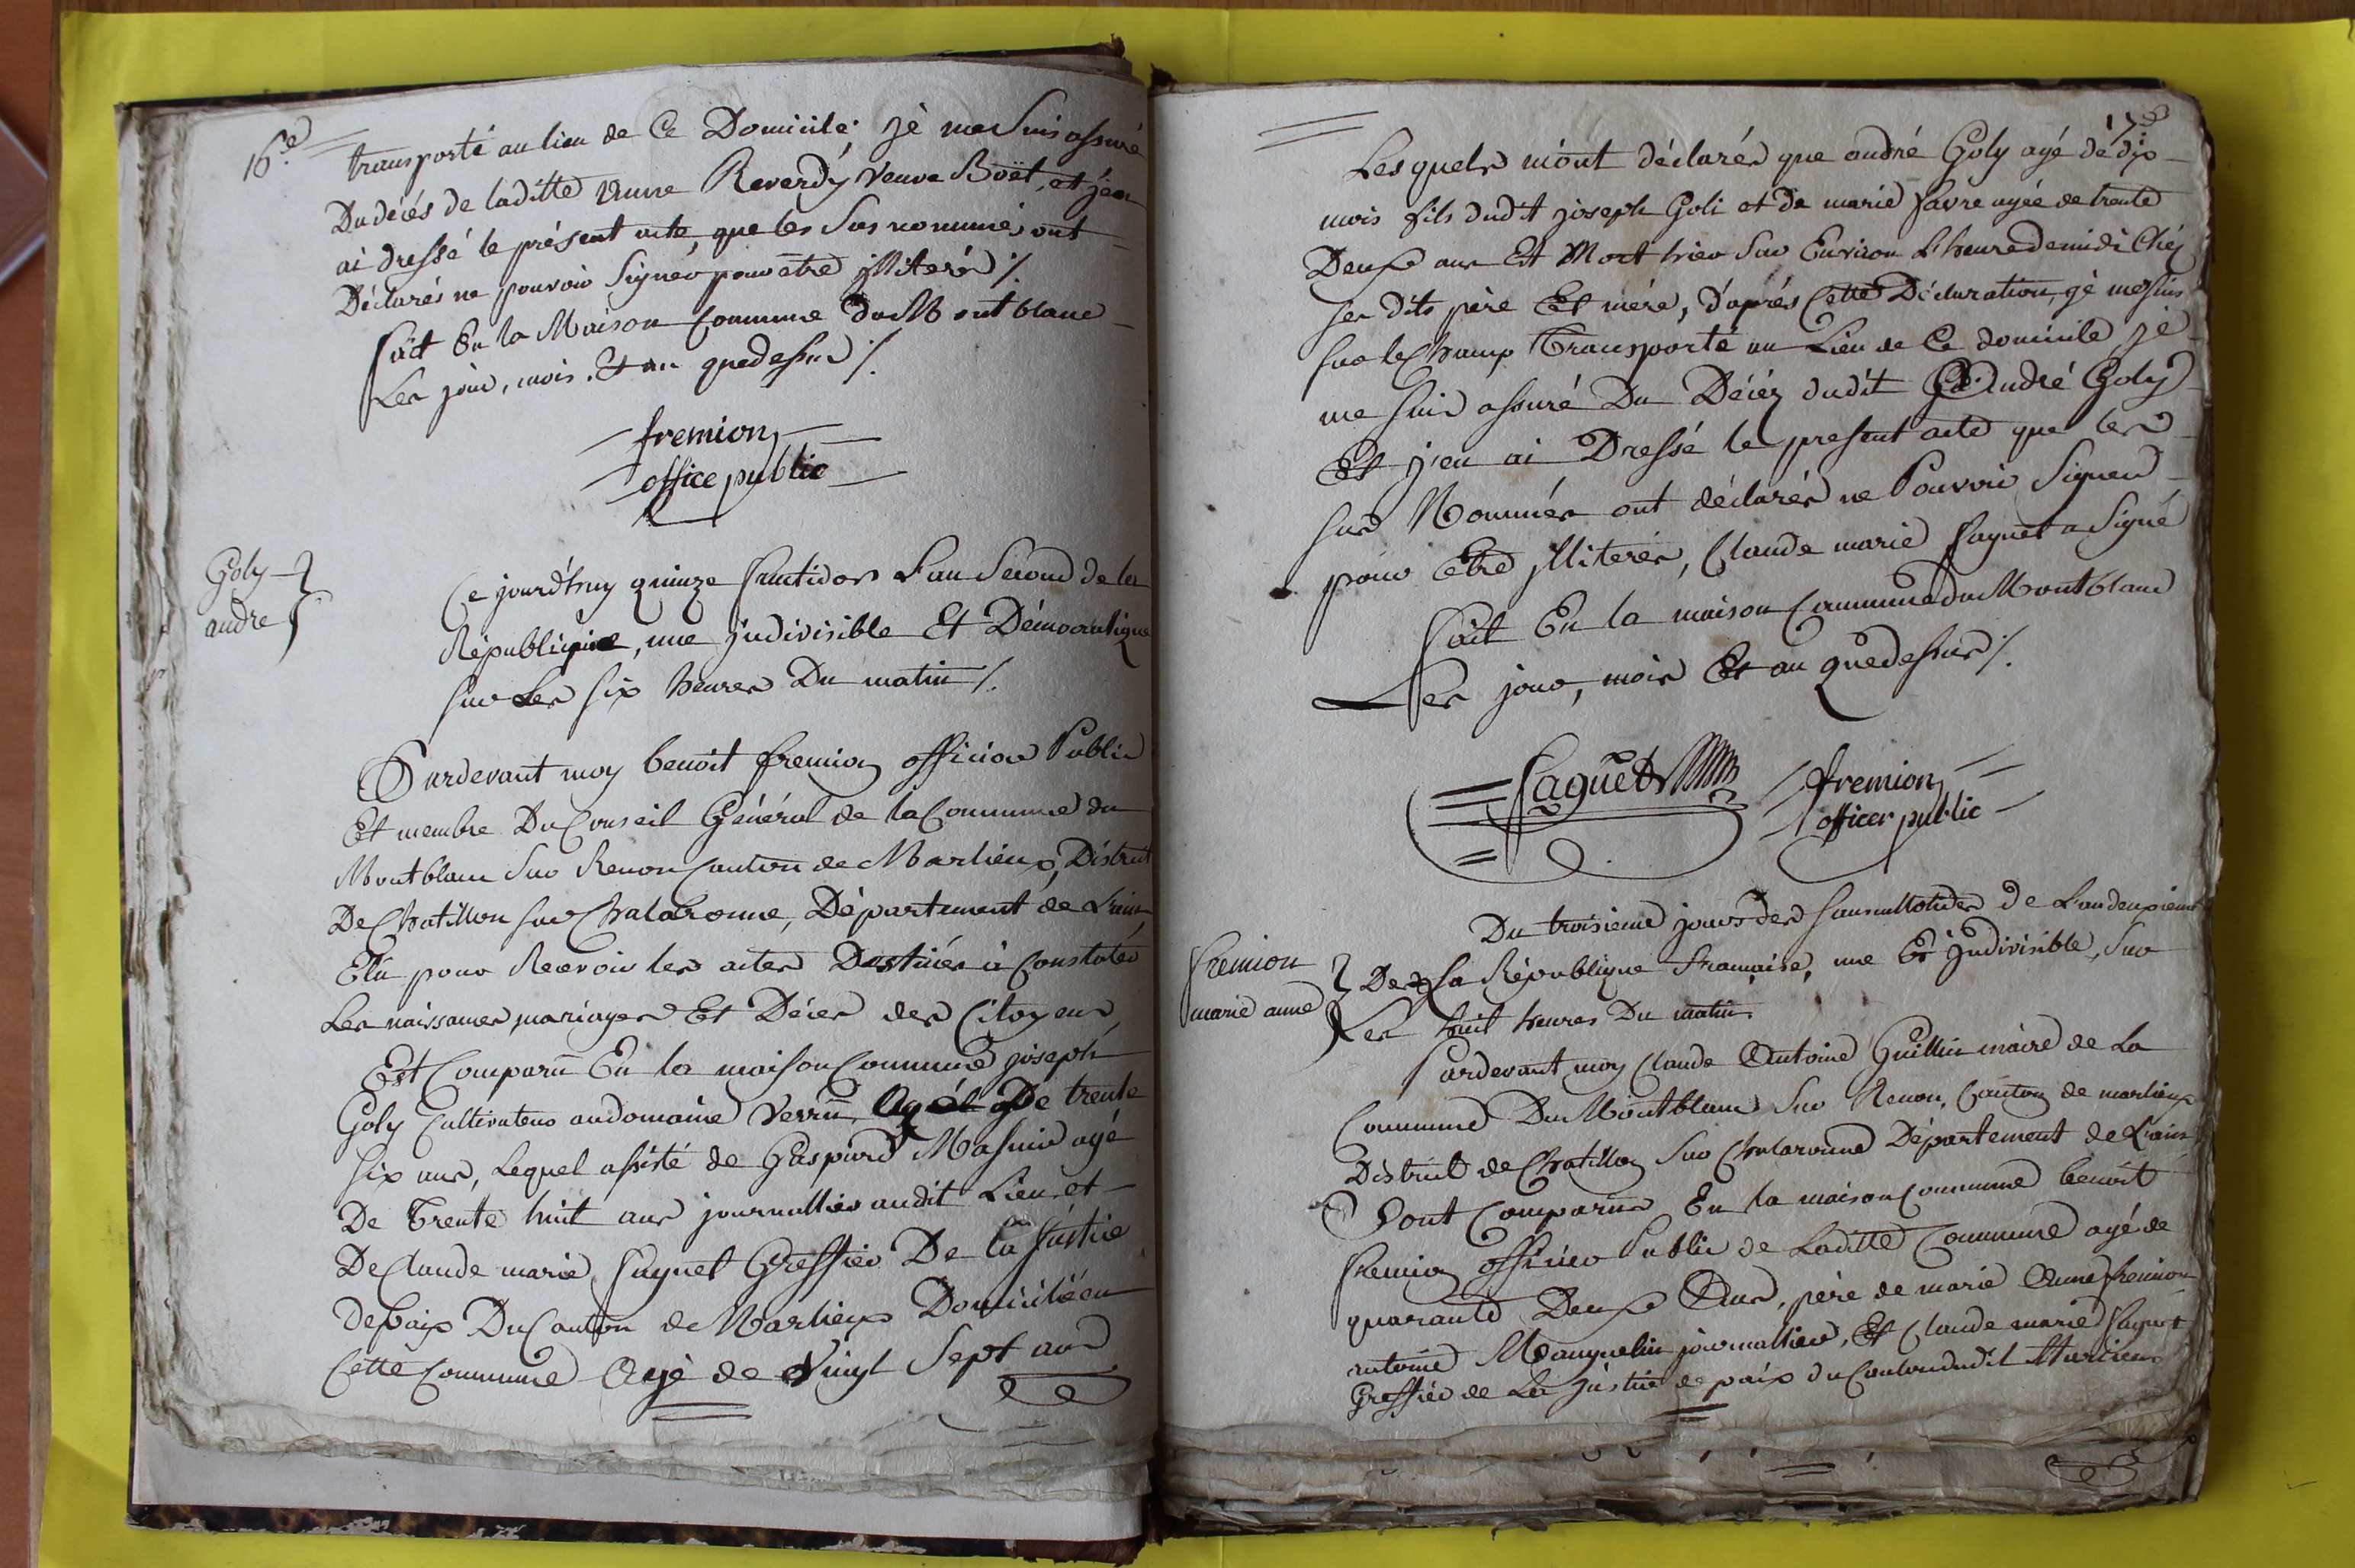 16e
transporté au lieu de Ce Domicile; je me suis assuré
Du décés de laditte Anne Reverdÿ Veuve Boët, et j'en
ai dressé le présent acte, que les Sus nommés ont
Déclarés ne pouvoir Signér pour être jlliterés /.
fait En la Maison Commune du Montblanc
Les jour, mois, Et an quedessus /.
fremion
office public
Goly
andre
Ce jourd'huy quinze fructidor L'an Second de la
République, une jndivisible Et Démocratique
sur Les six heures Du matin /.
Pardevant moy benoit fremion officier Public
Et membre Du Conseil Général de la Commune du
Montblanc Sur Renon Canton de Marlieux, District
De Chatillon sur Chalaronne, Département de L'ain,
Elû pour Recevoir les actes Destinés à Constatér
Les naissances mariages Et Décés des Citoyens
Est Comparû En la maison Commune joseph
Goly Cultivateur au domaine Verrû, De trente
six ans, Lequel assisté de Gaspard Masuir agé
De Trente huit ans journallier audit Lieu, et
De Claude marie faguet Greffier De la justice
de paix Du Canton de Marlieux Domicilié en
Cette Commune Agé de Vingt Sept ans
17e
Lesquels m'ont déclarés que andré Goly agé de dix
mois fils dudit joseph Goli et de marie favre agée de trente
Deux ans Est Mort hier Sur Environ L'heure de midi Chéz
ses dits père Et mére, d'aprés Cette Déclaration, je me suis
sur le Champ Transporté au Lieu de Ce domicile je
me suis assuré Du Décéz dudit André Goly
Et j'en ai Dressé le present acte que les
sus Nommés ont déclarés ne Pouvoir Signer
pour Etre jlliterés, Claude marie faguet a Signé
fait En la maison Commune du Montblanc
Les jour, mois Et an quedessus /.
faguet
fremion
officer public
fremion
marie anne
Du troisieme jours des sansculotides de L'an deuxieme
De La République francaise, une Et jndivisible, Sur
Les huit heures Du matin
Pardevant moy Claude Antoine Guillin maire de La
Commune Du Montblanc Sur Renon, Canton de marlieux
District de Chatillon Sur Chalaronne Département de L'ain
Sont Comparus En la maison Commune benoit
fremion officier Public de Laditte Commune agé de
quarante Deux Ans, père de marie Anne fremion
antoine Mauguelin journallier, Et Claude marie faguet
Greffiér de La justice de paix du Canton dudit Marlieux